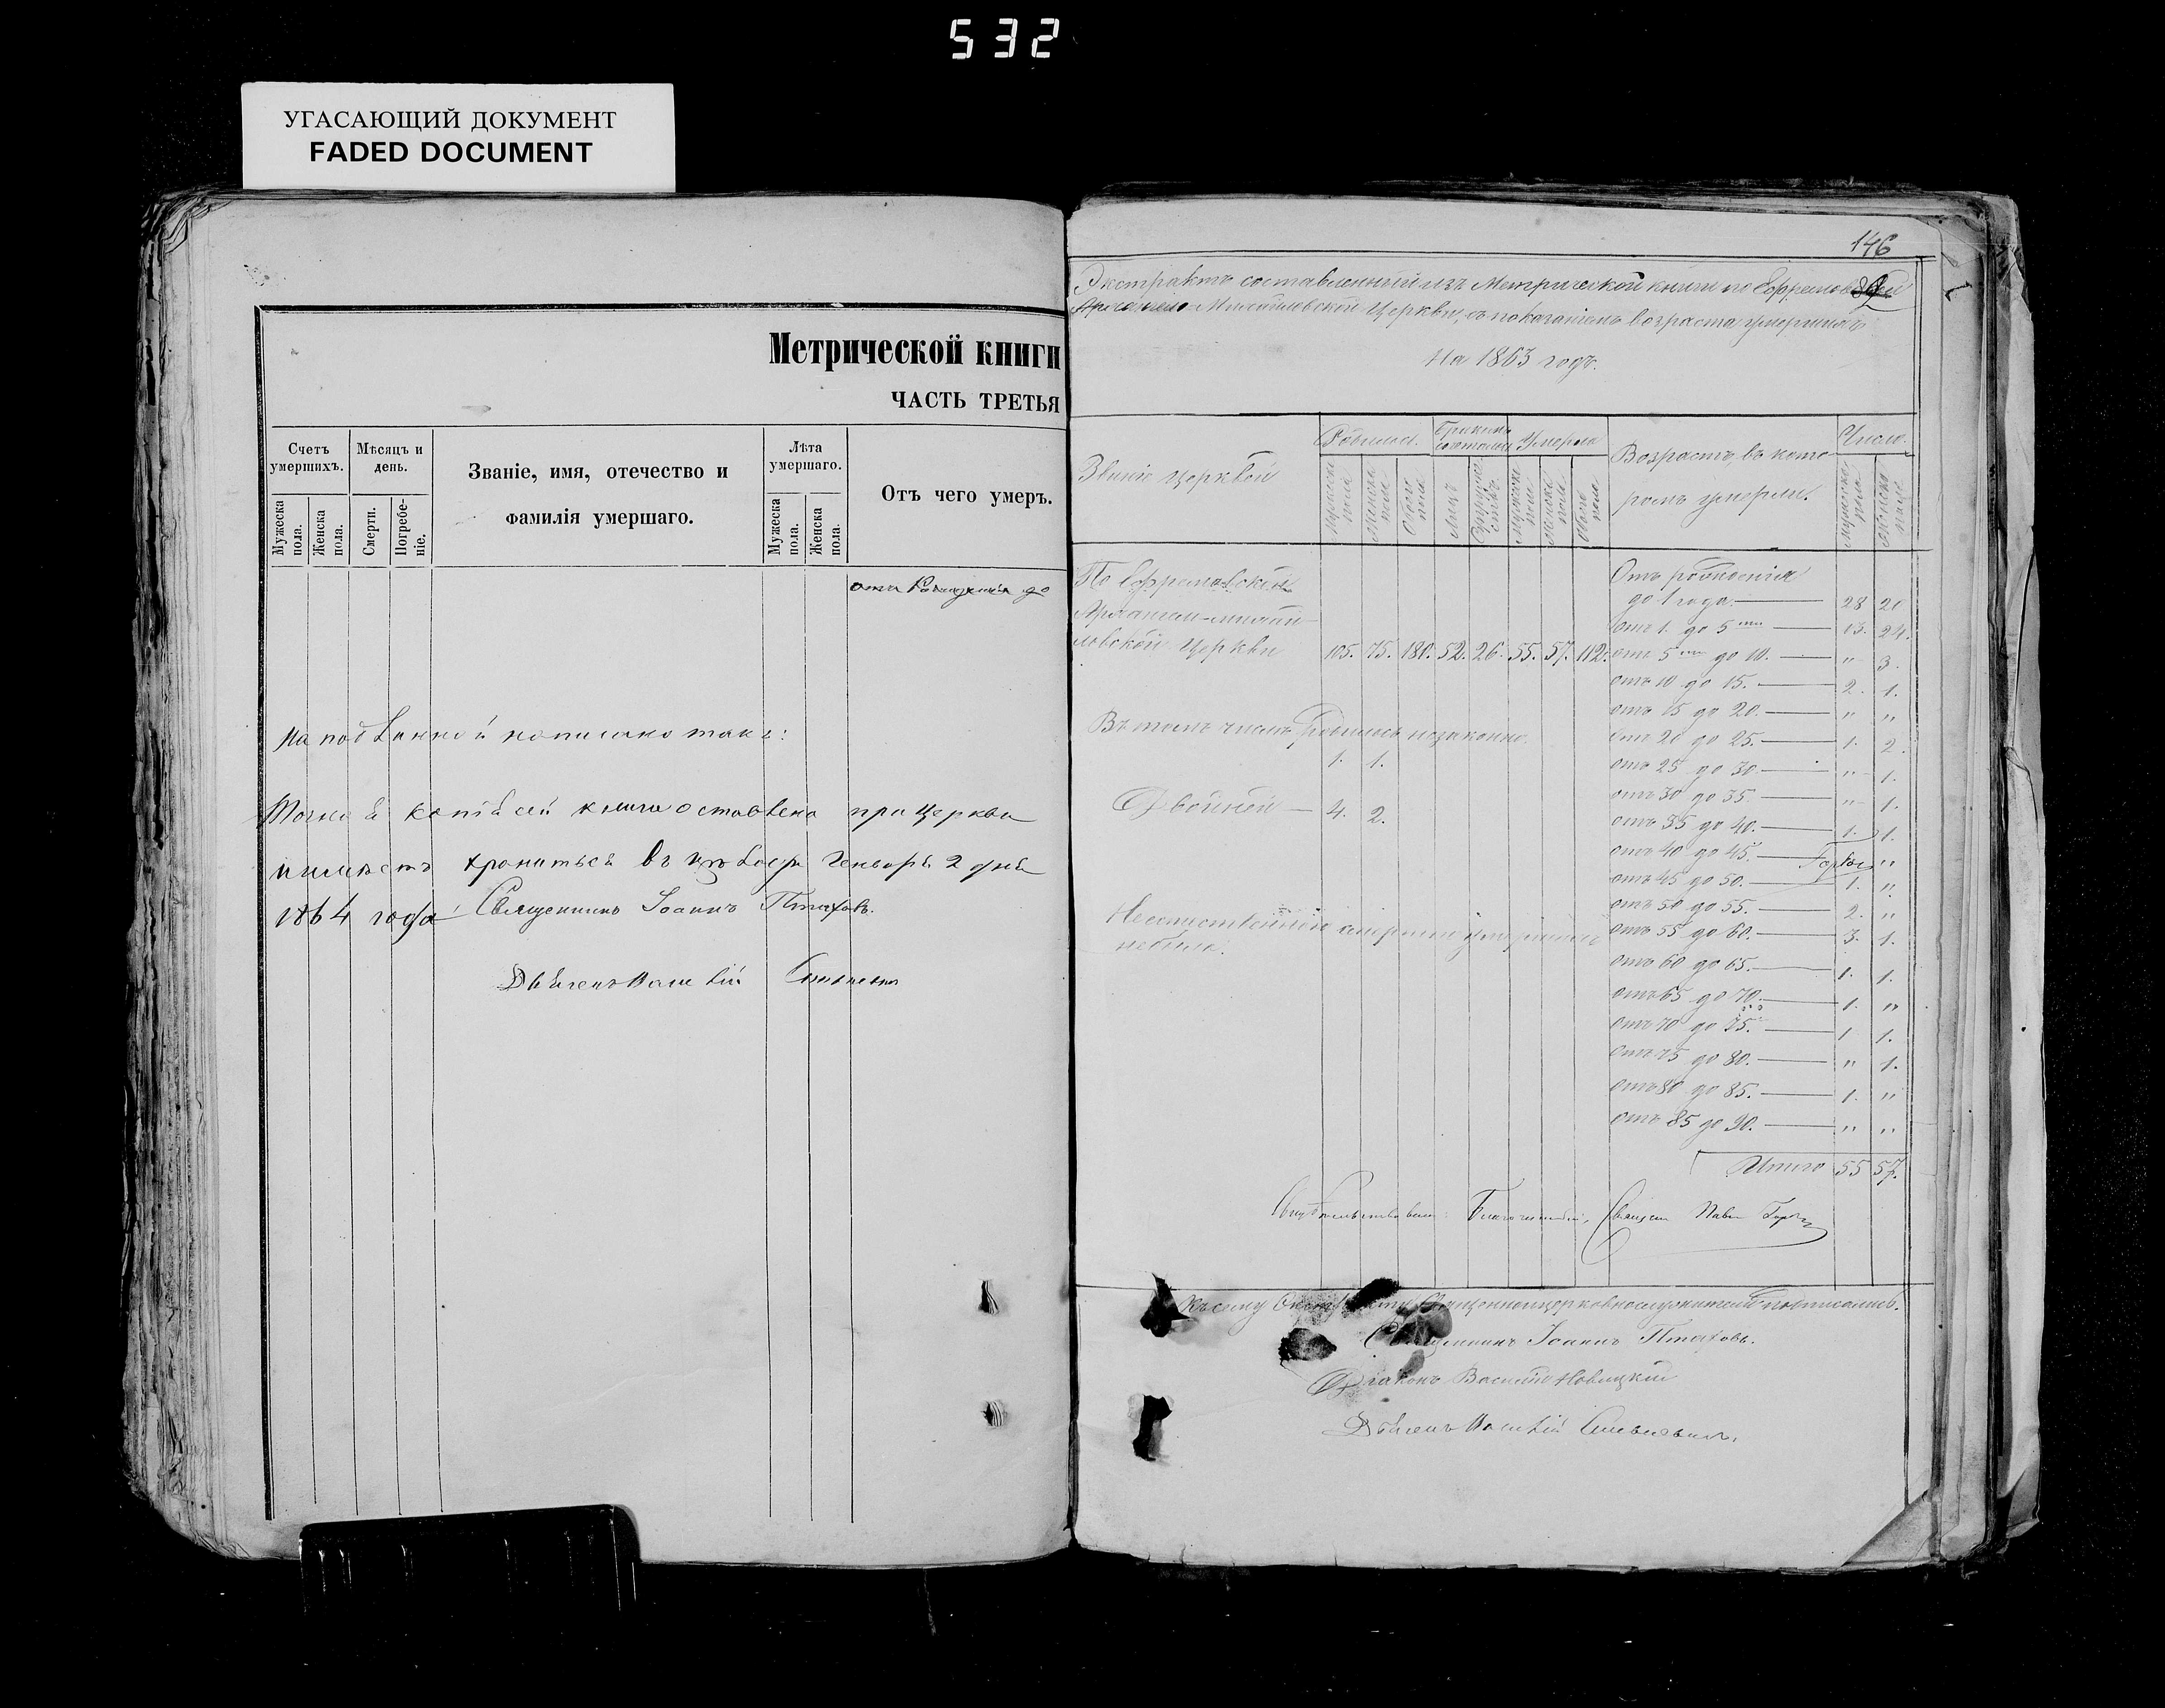 532
УГАСАЮЩИЙ ДОКУМЕНТ
FADED DOCUMENT
Метрической книги
ЧАСТЬ ТРЕТЬЯ
Счетъ умершихъ.
Мужеска пола.
Женска пола.
Мѣсяцъ и день.
Смерти.
Погребеніе.
Званіе, имя, отечество и
фамилія умершаго.
Лѣта умершаго.
Мужеска пола.
Женска пола.
Отъ чего умеръ.
отъ рожденія до
На подлинной написано такъ:
Точная копія сей книги оставлена при Церкви
и имѣетъ хранится въ цѣлости Генваря 2 дня
1864 года Священникъ Іоаннъ Птаховъ.
Дьячекъ Василій
146
Экстрактъ составленный изъ Метрической книги по Ефремовской
Архангело Михайловской Церкви, съ показаніемъ возраста умершихъ
на 1863 годъ.
Званіе церквей
Родилось.
Мужеска пола
Женска пола
Обоего пола
Бракомъ сочетались
Лицъ
Супружествъ
Умерло
Мужеска пола
Женска пола
Обоего пола
Возрастъ, въ кото
ромъ умерли.
Число.
Мужеска пола
Женска пола
По Ефремовской
Архангело-Михай
ловской Церкви 105. 75. 180. 52. 26. 55. 57. 112.
Въ томъ числѣ родилось незаконно
1. 1.
Двойней 4. 2.
умершихъ
небыло.
Отъ рожденія
до 1 года. 28 20
отъ 1. до 5ти 13. 24.
отъ 5ти до 10. " 3.
отъ 10 до 15. 2. 1.
отъ 15 до 20. " "
отъ 20 до 25. 1. 2.
отъ 25 до 30 " 1.
отъ 30 до 35. " 1.
отъ 35 до 40. 1. 1.
отъ 40 до 45. "
отъ 45 до 50. 1. "
отъ 50 до 55. 2. "
отъ 55 до 60. 3. 1.
отъ 60 до 65. 1. 1.
отъ 65 до 70. 1. "
отъ 70 до 75. 1 1.
отъ 75 до 80. " 1.
отъ 80 до 85. 1. "
отъ 85 до 90. " "
Итого 55 57.
Свидѣтельствовалъ: Благочинный, Священ
Къ сему Экстракту Священноцерковнослужители подписались.
Священникъ Іоаннъ Птаховъ.
Діаконъ Василій Новицкій
Дьячекъ Василій